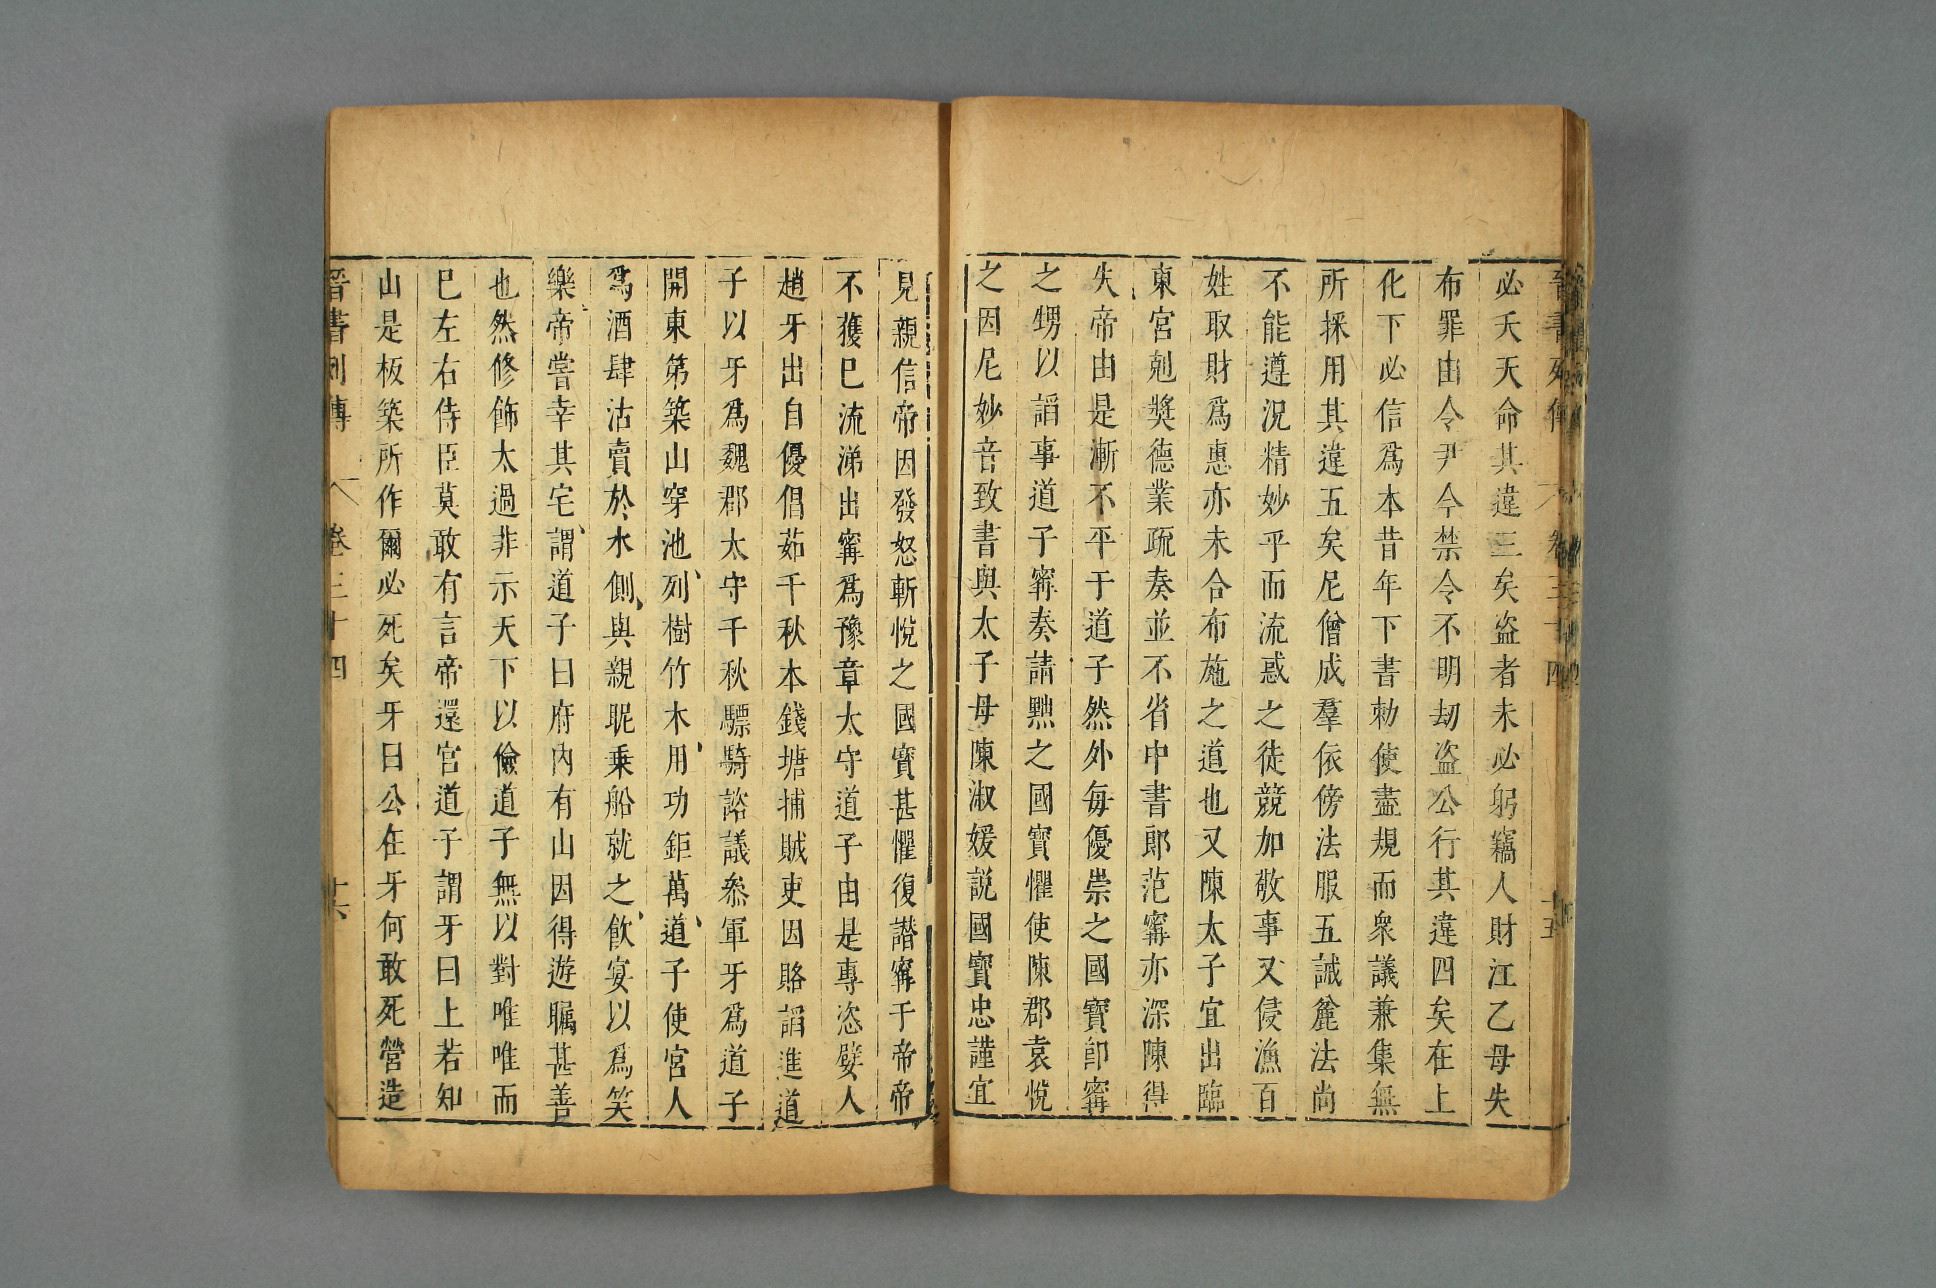 晉書列傳 卷三十四 十五
必夭天命其違三矣盜者未必躬竊人財江乙母失
布罪由令尹今禁令不明刧盜公行其違四矣在上
化下必信爲本昔年下書勑使盡規而衆議兼集無
所採用其違五矣尼僧成羣依傍法服五誡麄法尚
不能遵況精妙乎而流惑之徒競加敬事又侵漁百
姓取財爲惠亦未合布施之道也又陳太子宜出臨
東宮剋奬德業疏奏並不省中書郎范甯亦深陳得
失帝由是漸不平于道子然外每優崇之國寶卽甯
之甥以謟事道子甯奏請黜之國寶懼使陳郡袁悅
之因尼妙音致書與太子母陳淑媛説國寶忠謹宜
見親信帝因發怒斬悅之國寶甚懼復譖甯于帝帝
不獲已流涕出甯爲豫章太守道子由是專恣嬖人
趙牙出自優倡茹千秋本錢塘捕賊吏因賂謟進道
子以牙爲魏郡太守千秋驃騎諮議叅軍牙爲道子
開東第築山穿池列樹竹木用功鉅萬道子使宮人
爲酒肆沽賣於水側與親昵乗船就之飮宴以爲笑
樂帝嘗幸其宅謂道子曰府内有山因得遊矚甚善
也然修飾太過非示天下以儉道子無以對唯唯而
已左右侍臣莫敢有言帝還宮道子謂牙曰上若知
山是板築所作爾必死矣牙曰公在牙何敢死營造
晉書列傳 卷三十四 十六